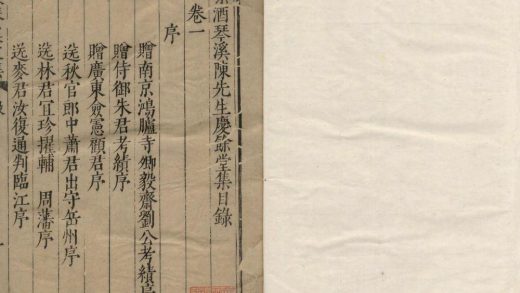 酒琴溪陳先生慶餘堂集目錄
卷一
序
贈南京鴻臚寺卿毅齋劉公考績序
贈侍御朱君考績序
贈廣東僉憲顧君序
送秋官郎中蕭君出守岳州序
送林君宜珍擢輔　周藩序
送麥君汝復通判臨江序